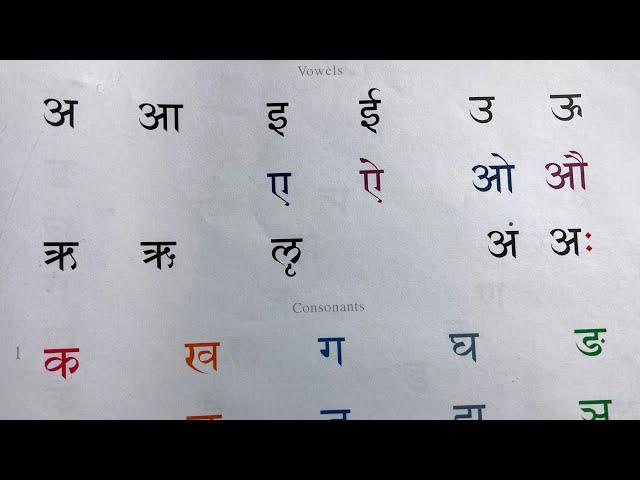 Vowels
अ आ इ ई उ ऊ
ए ऐ ओ औ
ऋ ॠ ऌ अं अः
Consonants
1 क ख ग घ ङ